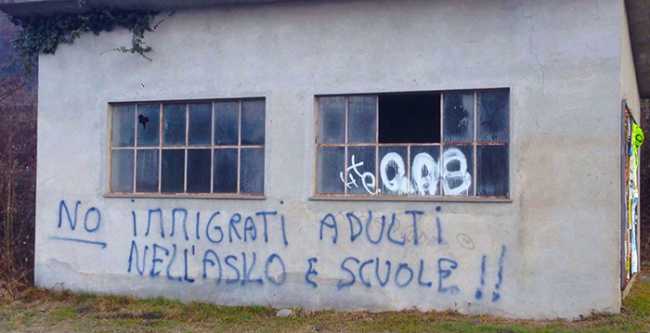 NO IMMIGRATI ADULTI
NELL'ASILO E SCUOLE!!